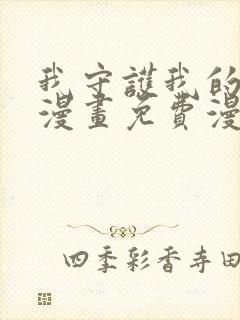 我守護我的
漫畫免費漫
四季彩香寺田